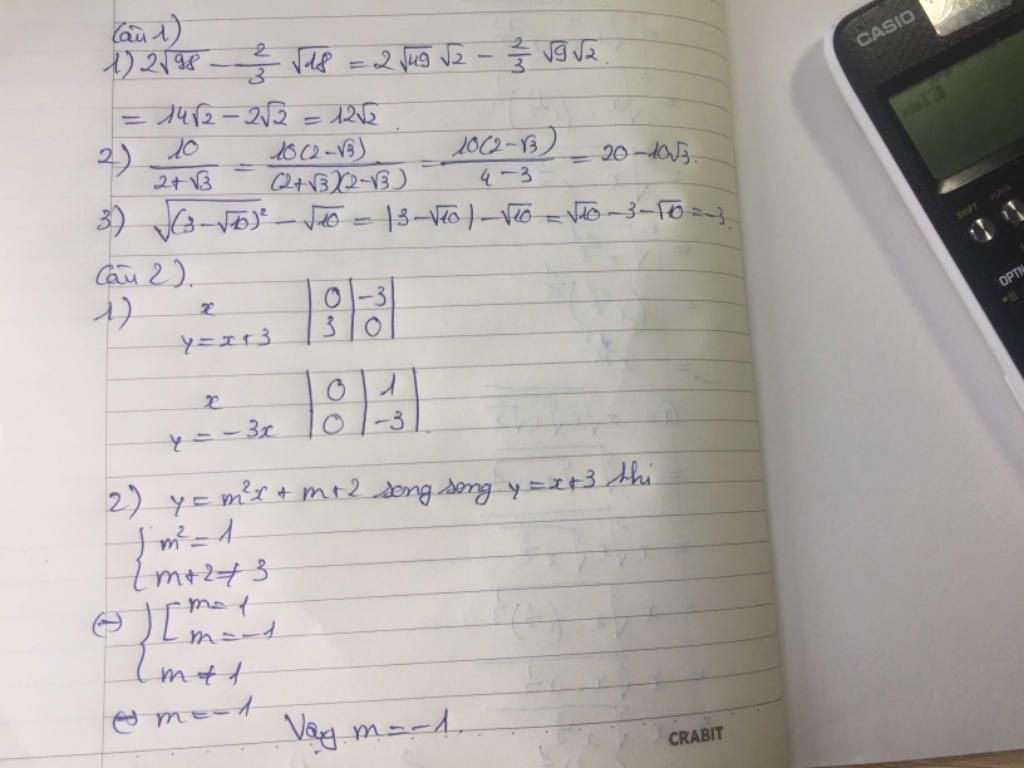 Câu 1)
1) 2√98 - 2/3 √18 = 2√49 √2 - 2/3 √9√2.
= 14√2 - 2√2 = 12√2.
2) 10/(2+√3) = 10(2-√3)/((2+√3)(2-√3)) = 10(2-√3)/(4-3) = 20-10√3.
3) √((3-√10)²) - √10 = |3-√10| - √10 = √10-3-√10 = -3.
Câu 2).
1) x | 0 | -3 |
y = x+3 | 3 | 0 |
x | 0 | 1 |
y = -3x | 0 | -3 |
2) y = m²x + m+2 song song y = x+3 khi
{ m² = 1
m+2 ≠ 3
⇔ { [ m = 1
m = -1
m ≠ 1
⇔ m = -1 Vậy m = -1.
CRABIT
CASIO
SHIFT
ALPHA
OPTN